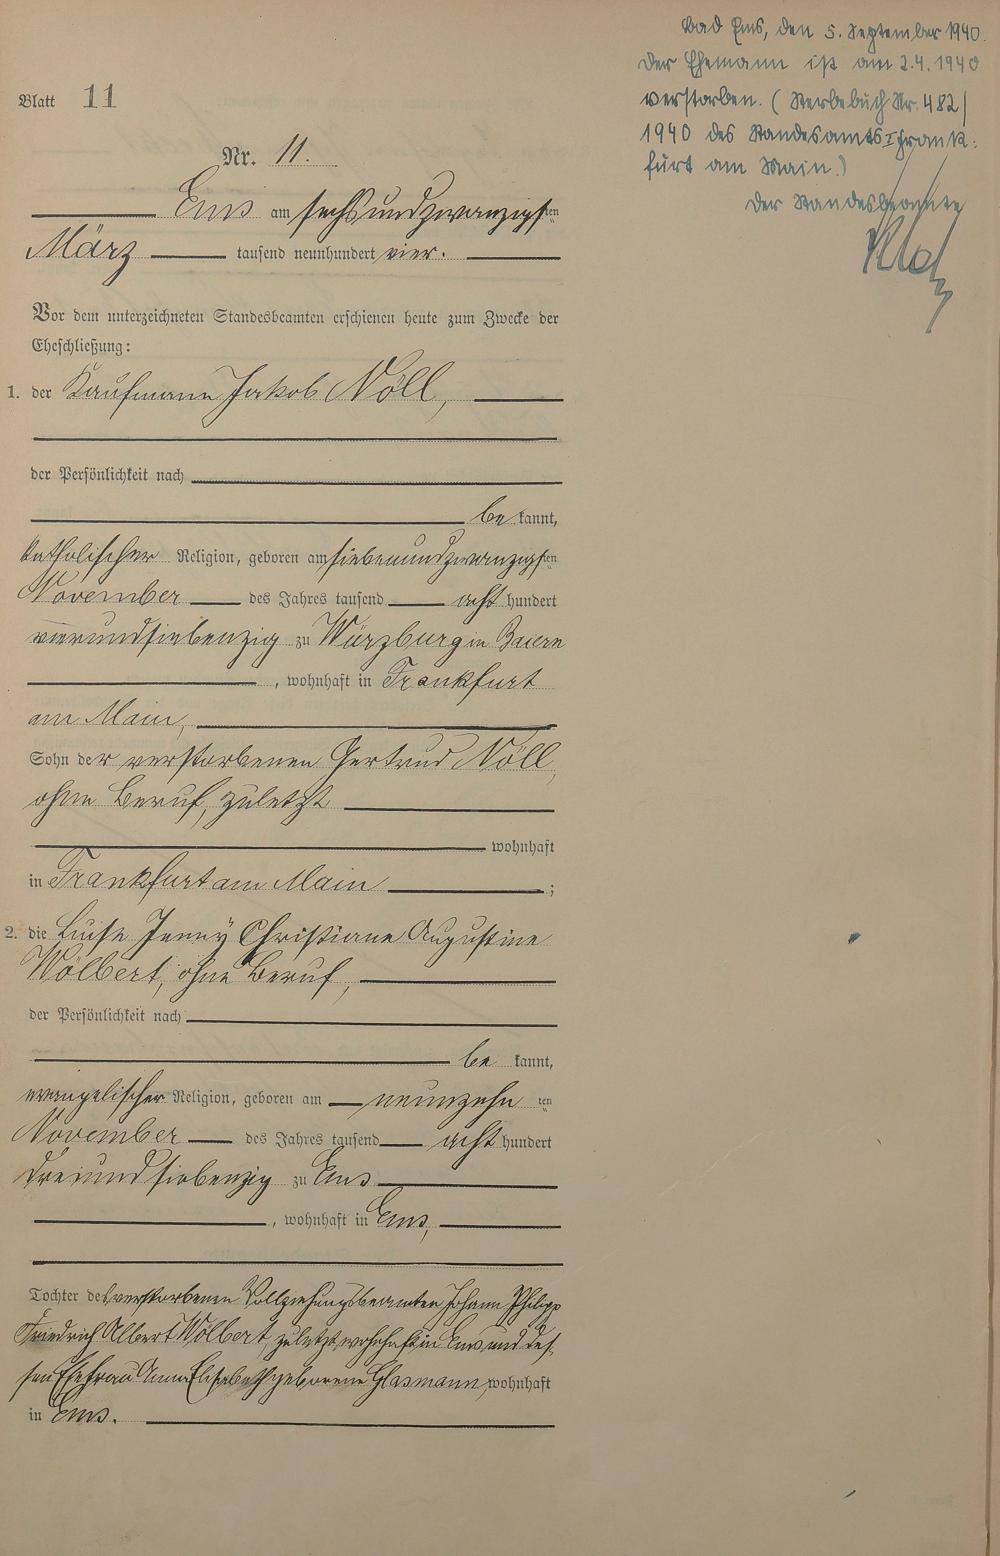 Bad Ems, den 5. September 1940.
Der Ehemann ist am 2.4.1940
verstorben. (Sterbebuch Nr. 482/
1940 des Standesamts I Frank-
furt am Main.)
Der Standesbeamte
Blatt 11
Nr. 11.
Ems am sechsundzwanzigsten
März tausend neunhundert vier.
Vor dem unterzeichneten Standesbeamten erschienen heute zum Zwecke der
Eheschließung:
1. der Kaufmann Jakob Nöll,
der Persönlichkeit nach
be kannt,
katholischer Religion, geboren am siebenundzwanzigsten
November des Jahres tausend acht hundert
vierundsiebenzig zu Würzburg in Baiern
, wohnhaft in Frankfurt
am Main,
Sohn der verstorbenen Gertrud Nöll,
ohne Beruf, zuletzt
wohnhaft
in Frankfurt am Main ;
2. die Luise Jenny Christiane Augustine
Wölbert, ohne Beruf,
der Persönlichkeit nach
be kannt,
evangelischer Religion, geboren am neunzehnten
November des Jahres tausend acht hundert
dreiundsiebenzig zu Ems
, wohnhaft in Ems,
Tochter des verstorbenen Vollziehungsbeamten Johann Philipp
Friedrich Albert Wölbert, zuletzt wohnhaft in Ems und des-
sen Ehefrau Anna Elisabeth geborene Glasmann, wohnhaft
in Ems.